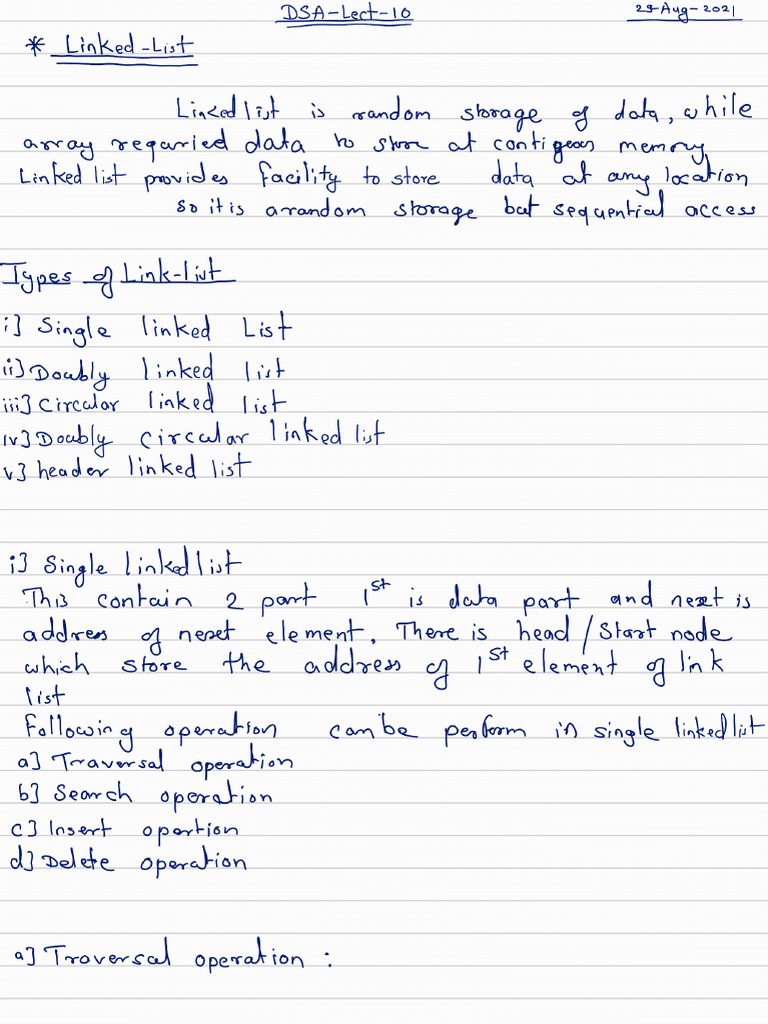 DSA-Lect-10
29-Aug-2021
* Linked-List
Linked list is random storage of data, while
array requried data to store at contigeous memory
Linked list provides facility to store data at any location
so it is a random storage but sequential access
Types of Link-list
i] Single linked List
ii] Doubly linked list
iii] Circular linked list
iv] Doubly circular linked list
v] header linked list
i] Single linked list
This contain 2 part 1st is data part and next is
address of next element. There is head/Start node
which store the address of 1st element of link
list
Following operation can be perform in single linked list
a] Traversal operation
b] Search operation
c] Insert opertion
d] Delete operation
a] Traversal operation :